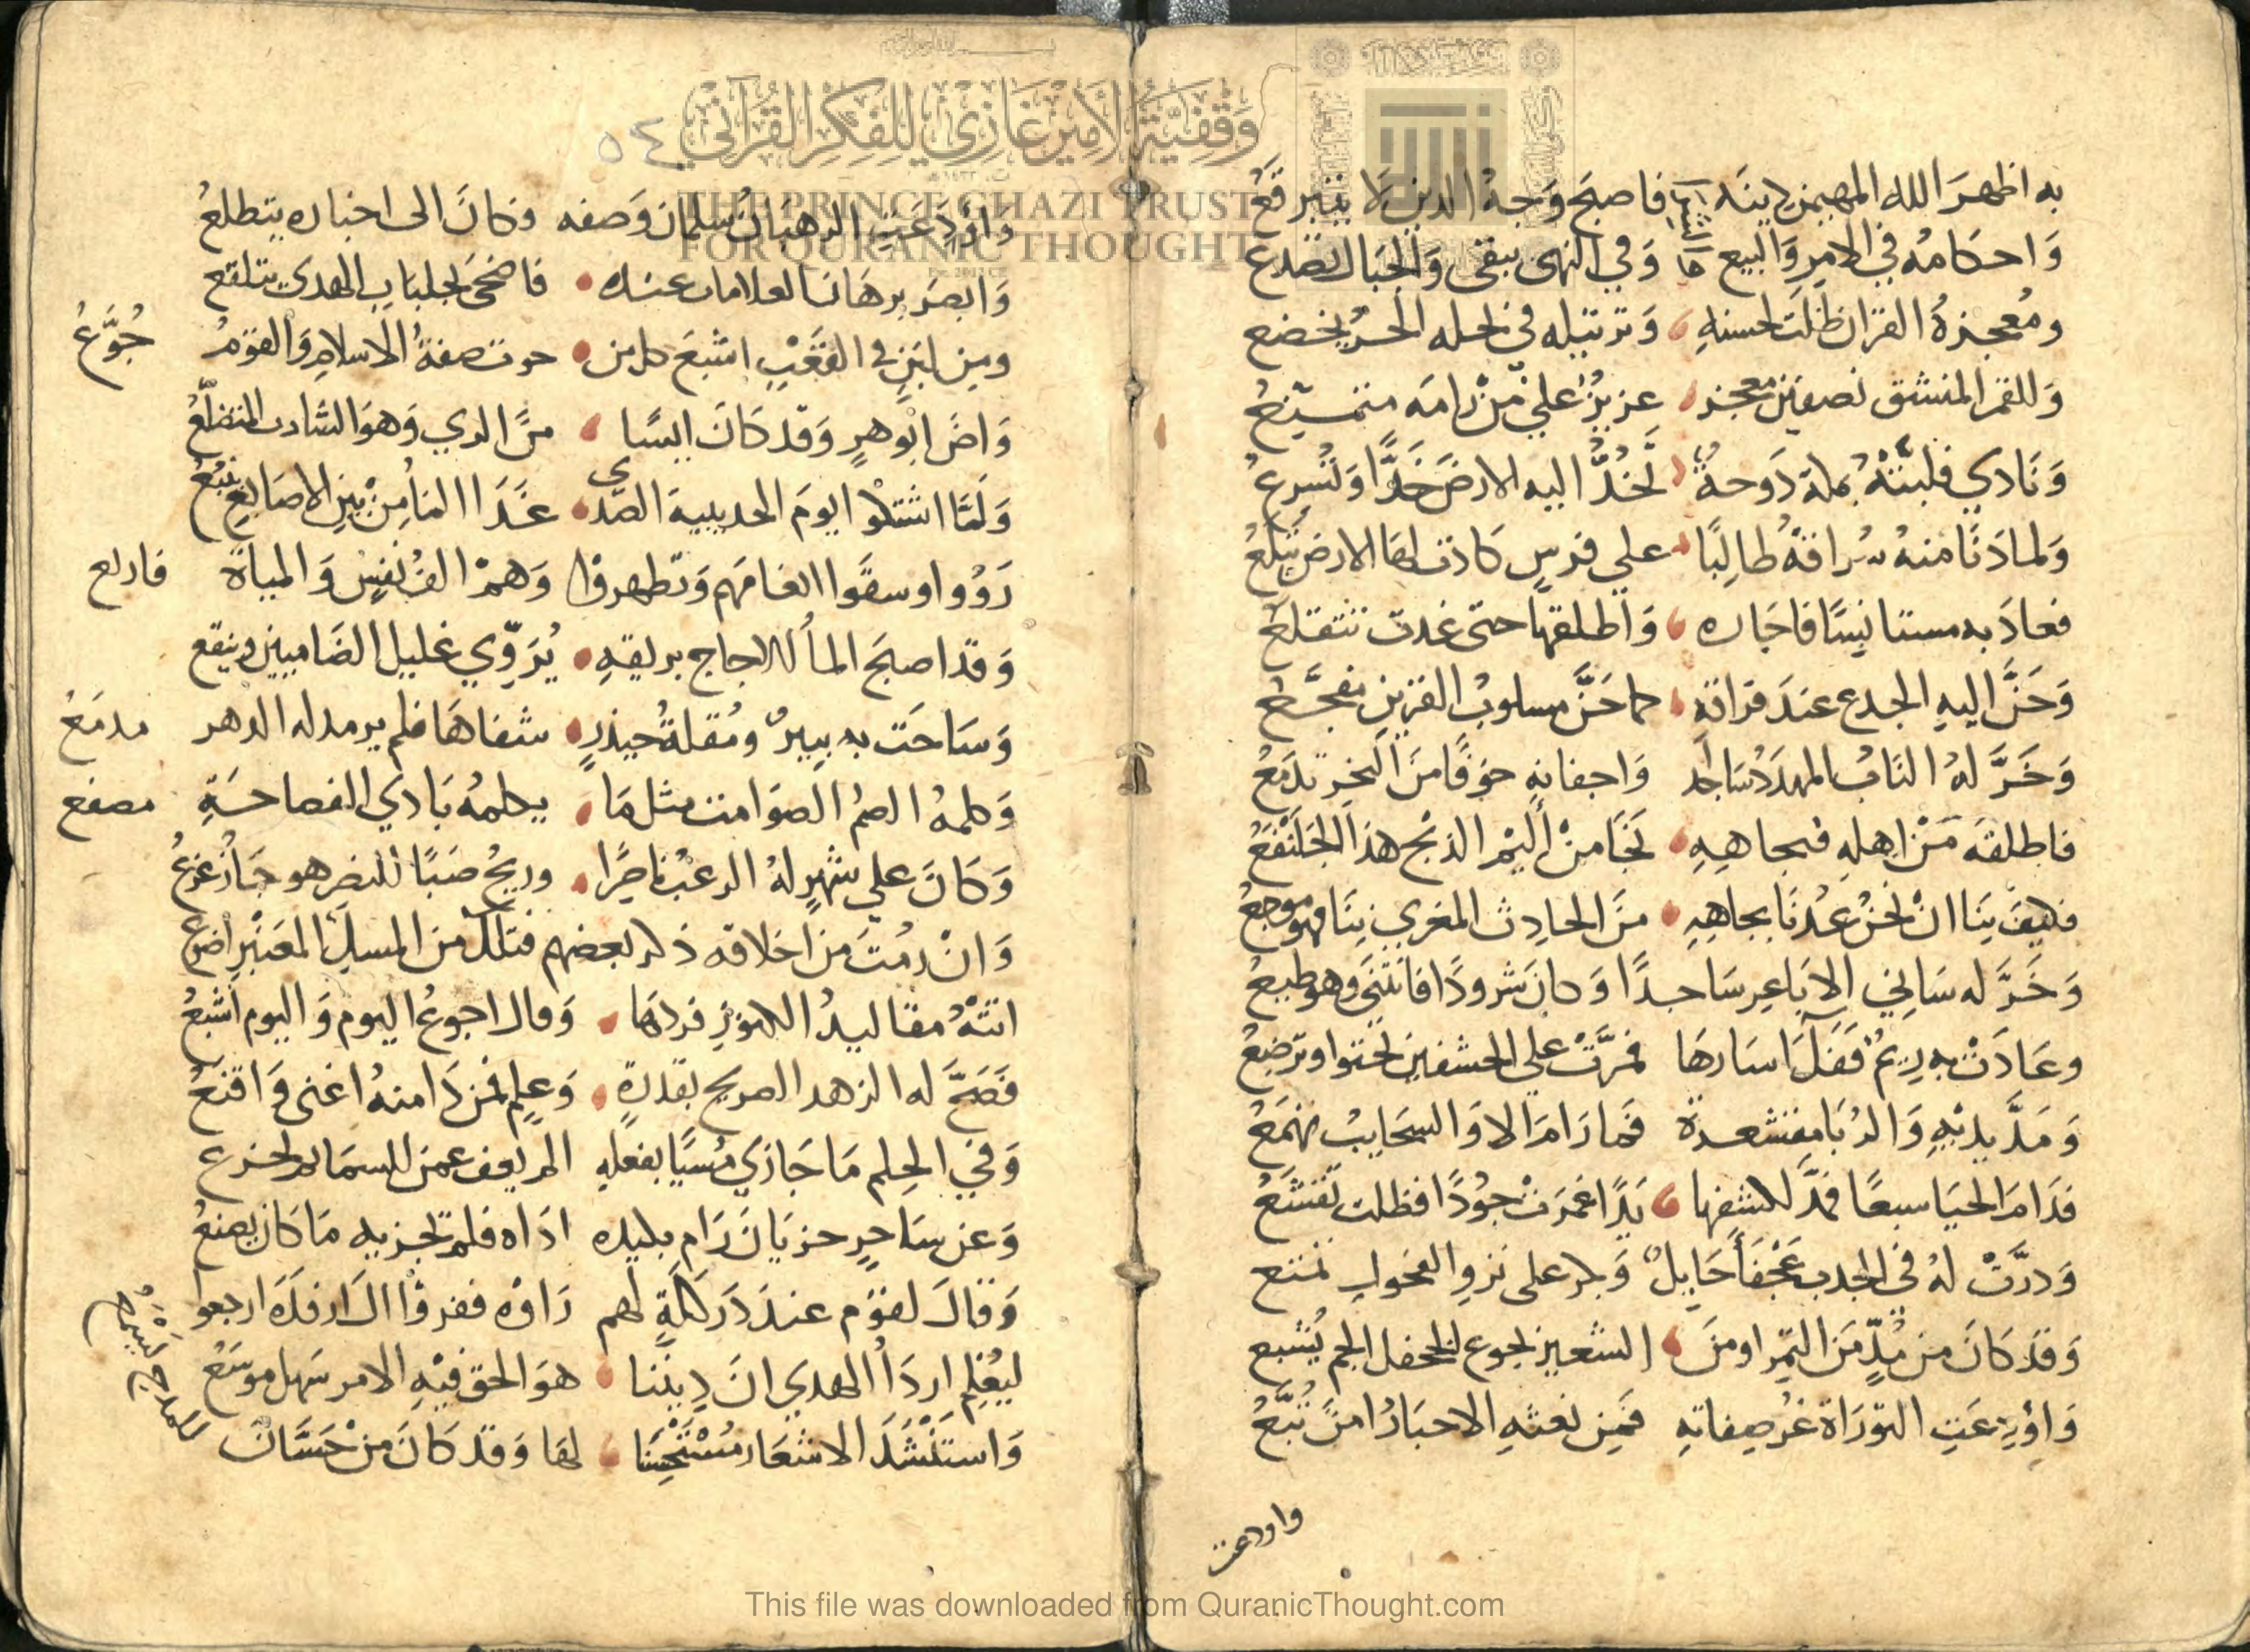 به اظهرَ الله المهيمن دينَه فاصبحَ وَجهُ الدين لا يتبرقعُ
وَاحكامهُ في الامرِ وَالبيع وَفي النهى تبقى وَالجبال تصَدع
ومُعجزةُ القران ظلت لحسنهِ وَترتيله في نحله الحسن يخضع
وَللقمر المنشق نصفين معجز عزيزٌ علي مَنْ رامَه متمسيّعُ
وَنَادي فلبتْهُ بمكة دَوحةٌ تَخُدُّ اليه الارضَ خدًّا وَتُسرعُ
وَلما دَنَا منهُ سُراقةُ طالِبًا علي فرسٍ كادت لها الارض تبلعُ
فعادَ به مستانيسًا فاجَاره وَاطلقها حتى غدت تتقلعُ
وَحَنَّ اليهِ الجدع عندَ فراقهِ كما حَنَّ مسلوبُ القرينِ مفجَّعُ
وَخَرَّ لهُ النابُ المهدد سَاجد وَاجفانهِ خوفًا منَ النحرِ تدمَعُ
فاطلقه مَنْ اهلهِ فبجاههِ نجَا مِنْ أليْم الذبْح هذَا الجلَنْفَعُ
فكيفَ بِنَا انْ نحْنُ عُدْنَا بجاههِ منَ الحادِث المغري بِنَا فهو موجعُ
وَخَرَّ له سَاني الابَاعِر سَاجدًا وَكانَ شرودًا فانثنى وهو طيعُ
وعَادَتْ به رِيمُ فَفَكَّ اسَارهَا فمرَّتْ علي الخشفين لحنوا وترضعُ
وَمَدَّ يديْهِ وَالرُبَا مقشعرة فمَا رَامَ الا وَالسحَايبُ تهمَعُ
فدَامَ الحيَا سبعًا فمدَّ لكشفها يَدًا غمرَتْ جوُدًا فظلت تقشَعُ
وَدرَّتْ لهُ في الجدب عَجْفَأ حَايِلٌ وَبكر على نزوِ الفحول تمنع
وَقدْ كَانَ من مُدٍّ مَن التمِر او منَ الشعير بجوع الجحفل الجم يُشبع
وَاوْدِعَتِ التوْرَاة غُر صِفاتهِ فمِن نعتهِ الاحبَارُ امنَ تُبَّعُ
واودعت
٥٤
وَاوْدَعَتِ الرهبَانُ سلمان وَصفه وكانَ الى اخباره يتطلعُ
وَابصَر برهَان العلامات عنده فاضحَى بجلبَابِ الهدى يتلفع
ومِن لبَنٍ في القعْبِ اشبعَ كل من حوت صفةُ الاسلامِ وَالقومُ جُوَّعُ
وَاضَ ابُوهرٍ وَقد كَانَ ايسًا منَ الري وَهوَ الشارب المتضلّعُ
وَلمّا اشتكوا يومَ الحديبية الصّدى غدَا المأ مِنْ بيْنِ الاصَابع ينبُعُ
رَوُوا وسقوا انعامَهم وَتطهروا وَهمْ الفُ نفسٍ وَالمياة فارلع
وَقد اصبحَ المأ الاجاج بريقهِ يُرَوّي غليل الضاميين وينقع
وَسَاحَت به بِيرٌ ومُقلةُ حيذرٍ شفاهَا فلم يرمد له الدهر مدمَعُ
وَكلمهُ الصمُ الصوَامت مثل مَا يكلمهُ بَادي الفصاحَةِ مصقع
وَكَانَ علي شهرٍ لهُ الرعبُ ناصرًا وريحُ صَبًا للنصر هوجَا زُعزعُ
وَانْ رمُتَ مِن اخلاقه ذكر بعضهم فتلك من المسك المعَنْبرِ اضوع
اتتْهُ مقاليدُ الكنوز فردهَا وَقال اجوعُ اليوم وَاليوم اشبَعُ
فَصَحَّ له الزهد الصريح بقدرةٍ وَعِلمٍ فمن ذَا منهُ اغنى وَاقنَعُ
وَفي الحِلم مَا جَازي مُسيًا بفعلهِ الم يعف عمن للسمَام لجزع
وَعن سَاحرٍ حزيَانَ رَام بكيده اذاه فلم تجزيه مَا كَان يصنعُ
وَقالَ لقوم عندَ دَركَلةٍ لهم رَاوْه ففروْا الَ ارفدَه ارجعوا
ليُعْلم اردَأ الهدي انَ دِيننا هوَ الحق فيْهِ الامر سَهل موسَعُ
وَاستَنْشَدَ الاشعَار مُسْتَحْسِنًا لها وَقد كَانَ مِنْ حَسَّانَ للمدح يَسْمعُ
وَقْفِيَّةُ الأَمِيرِ غَازِي لِلْفِكْرِ الْقُرْآنِي
THE PRINCE GHAZI TRUST
FOR QURANIC THOUGHT
This file was downloaded from QuranicThought.com